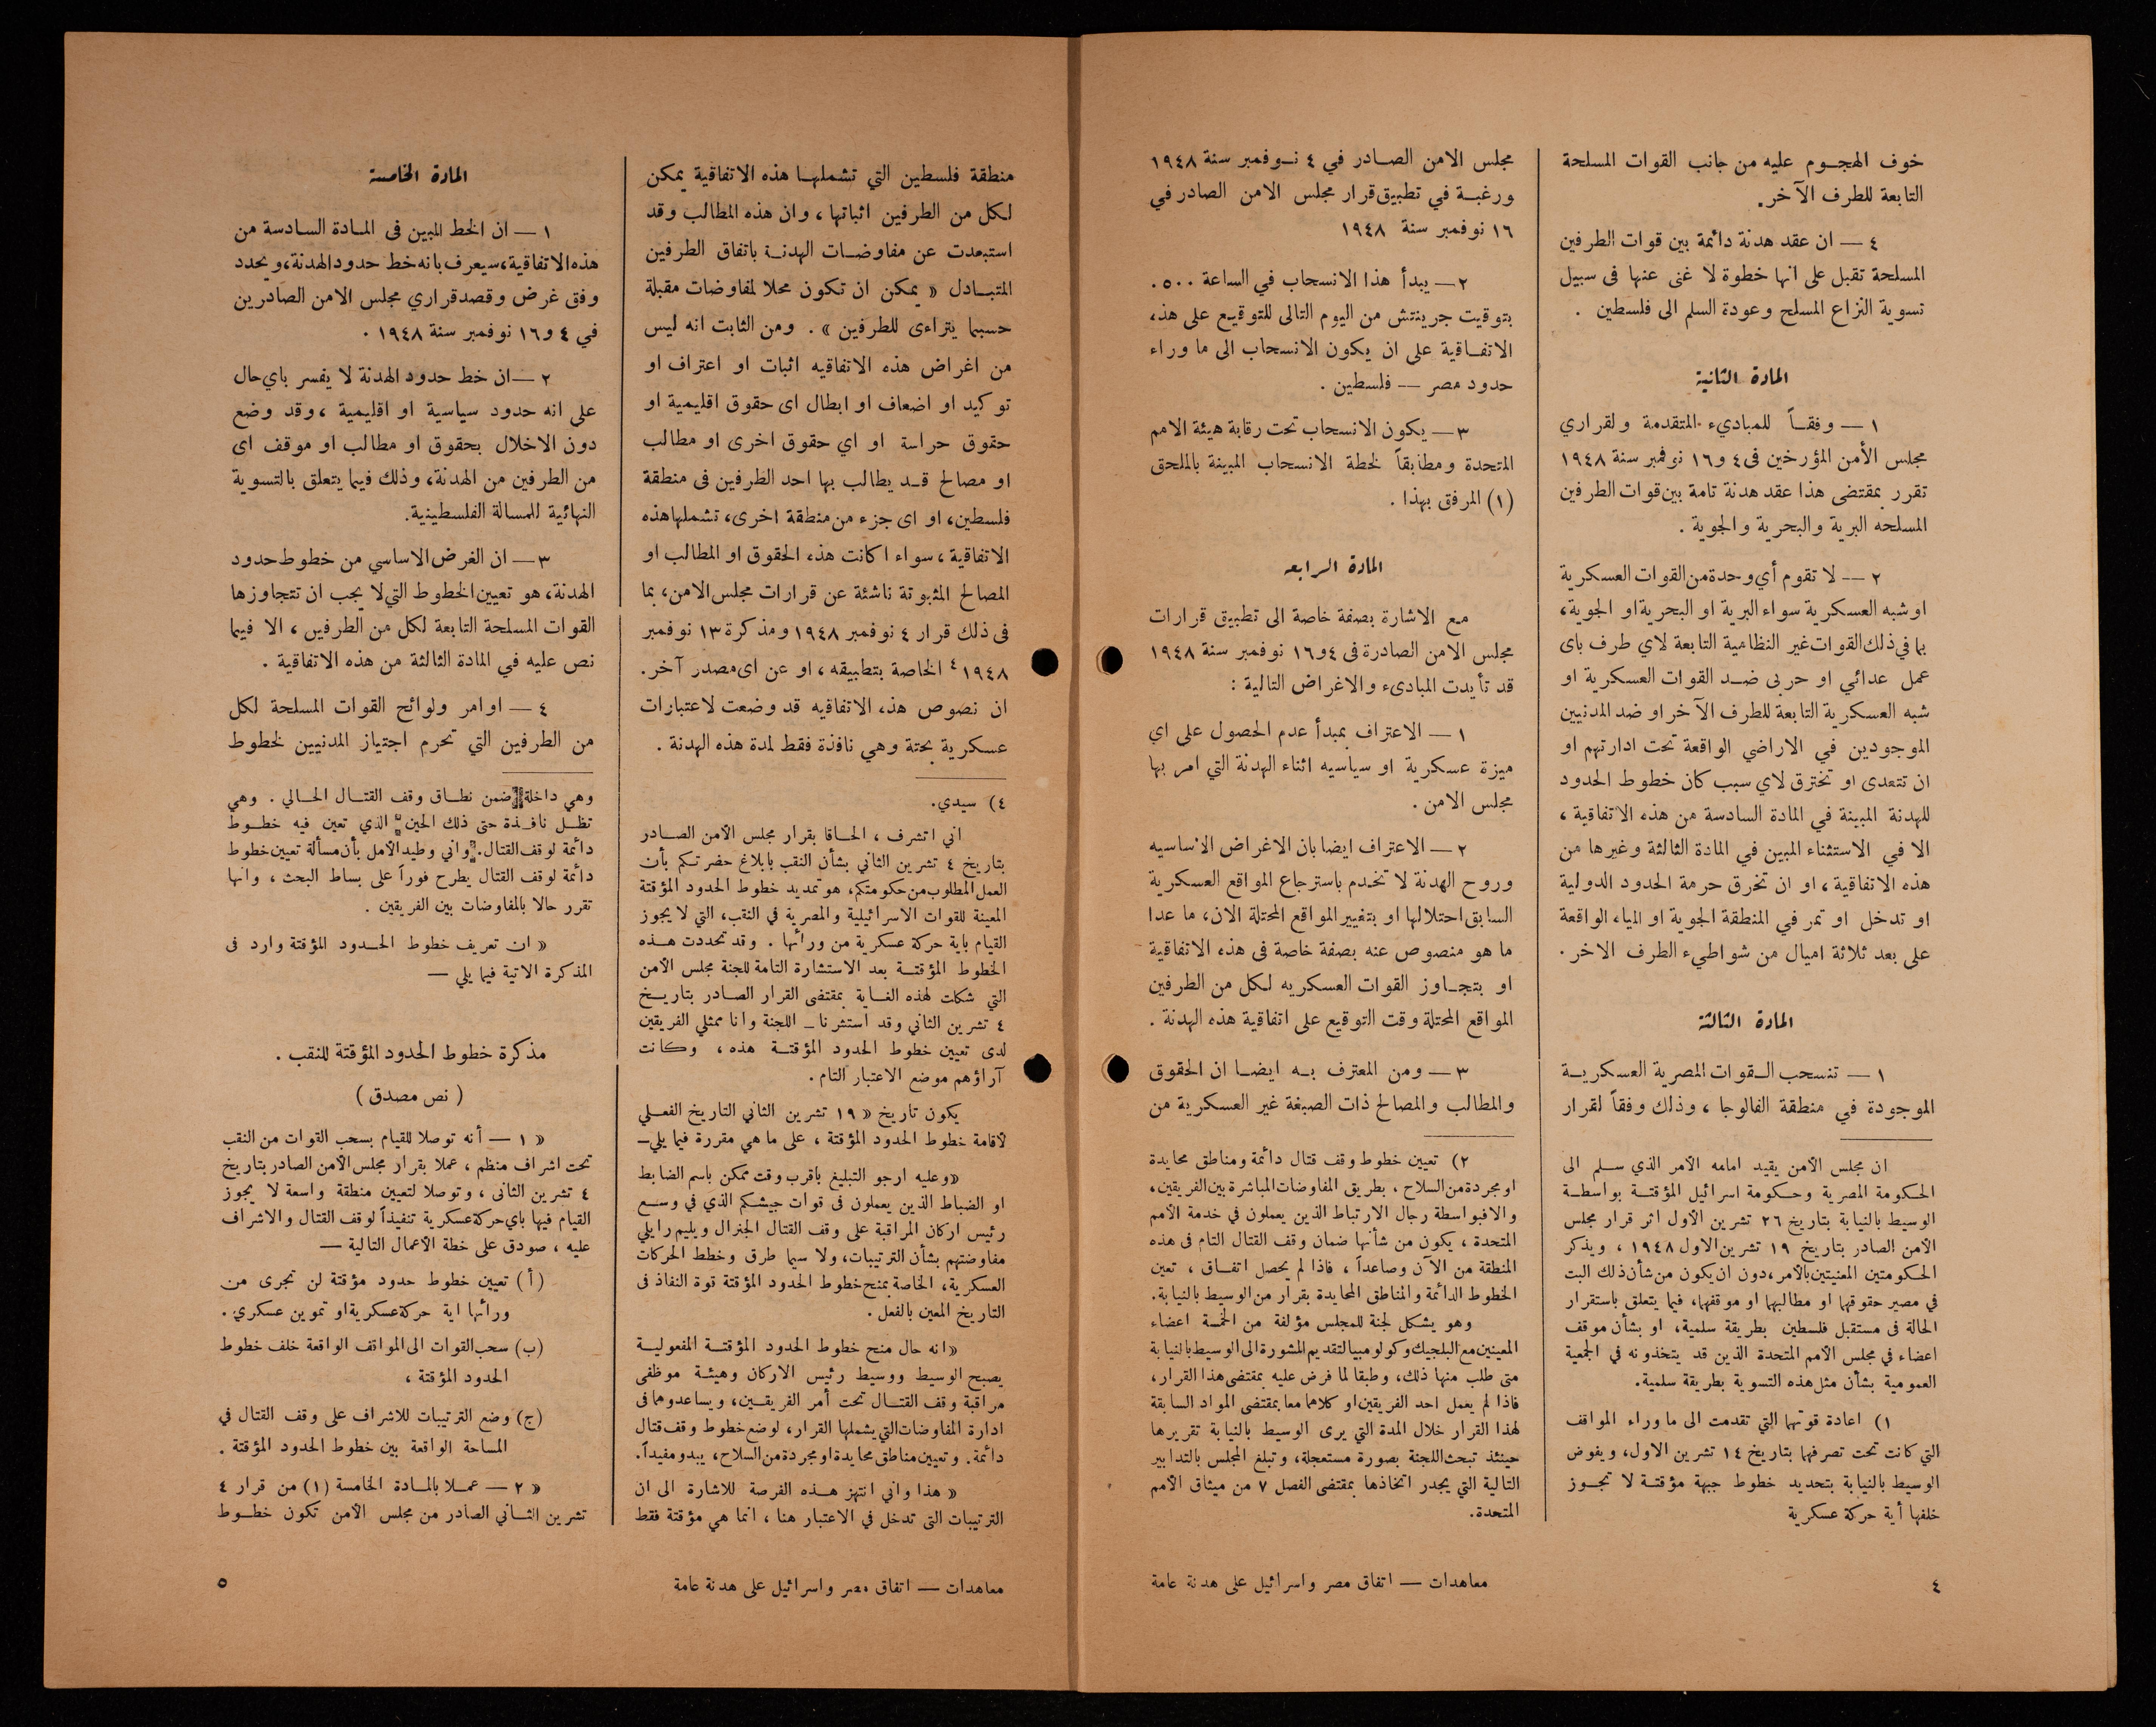 خوف الهجوم عليه من جانب القوات المسلحة
التابعة للطرف الآخر.
٤ — ان عقد هدنة دائمة بين قوات الطرفين
المسلحة تقبل على انها خطوة لا غنى عنها فى سبيل
تسوية النزاع المسلح وعودة السلم الى فلسطين .
المادة الثانية
١ — وفقاً للمباديء المتقدمة ولقراري
مجلس الأمن المؤرخين فى ٤ و١٦ نوفمبر سنة ١٩٤٨
تقرر بمقتضى هذا عقد هدنة تامة بين قوات الطرفين
المسلحه البرية والبحرية والجوية .
٢ — لا تقوم أي وحدة من القوات العسكرية
او شبه العسكرية سواء البرية او البحرية او الجوية،
بما في ذلك القوات غير النظامية التابعة لاي طرف باى
عمل عدائي او حربى ضد القوات العسكرية او
شبه العسكرية التابعة للطرف الآخر او ضد المدنيين
الموجودين في الاراضي الواقعة تحت ادارتهم او
ان تتعدى او تخترق لاي سبب كان خطوط الحدود
للهدنة المبينة في المادة السادسة من هذه الاتفاقية ،
الا في الاستثناء المبين في المادة الثالثة وغيرها من
هذه الاتفاقية ، او ان تخرق حرمة الحدود الدولية
او تدخل او تمر في المنطقة الجوية او المياه الواقعة
على بعد ثلاثة اميال من شواطيء الطرف الاخر .
المادة الثالثة
١ — تنسحب القوات المصرية العسكرية
الموجودة في منطقة الفالوجا ، وذلك وفقاً لقرار
ان مجلس الأمن يقيد امامه الأمر الذي سلم الى
الحكومة المصرية وحكومة اسرائيل المؤقتة بواسطة
الوسيط بالنيابة بتاريخ ٢٦ تشرين الأول اثر قرار مجلس
الأمن الصادر بتاريخ ١٩ تشرين الاول ١٩٤٨ ، ويذكر
الحكومتين المعنيتين بالأمر، دون ان يكون من شأن ذلك البت
في مصير حقوقها او مطالبها او موقفها، فيما يتعلق باستقرار
الحالة فى مستقبل فلسطين بطريقة سلمية، او بشأن موقف
اعضاء في مجلس الأمم المتحدة الذين قد يتخذونه في الجمعية
العمومية بشأن مثل هذه التسوية بطريقة سلمية.
١) اعادة قوتها التي تقدمت الى ما وراء المواقف
التي كانت تحت تصرفها بتاريخ ١٤ تشرين الاول، ويفوض
الوسيط بالنيابة بتحديد خطوط جبهة مؤقتة لا تجوز
خلفها أية حركة عسكرية
٤
مجلس الامن الصادر في ٤ نوفمبر سنة ١٩٤٨
ورغبة في تطبيق قرار مجلس الامن الصادر في
١٦ نوفمبر سنة ١٩٤٨
٢ — يبدأ هذا الانسحاب في الساعة ٥٠٠.
بتوقيت جرينتش من اليوم التالى للتوقيع على هذه
الاتفاقية على ان يكون الانسحاب الى ما وراء
حدود مصر — فلسطين .
٣ — يكون الانسحاب تحت رقابة هيئة الامم
المتحدة ومطابقاً لخطة الانسحاب المبينة بالملحق
(١) المرفق بهذا .
المادة الرابعه
مع الاشارة بصفة خاصة الى تطبيق قرارات
مجلس الامن الصادرة فى ٤ و١٦ نوفمبر سنة ١٩٤٨
قد تأيدت المبادىء والاغراض التالية :
١ — الاعتراف بمبدأ عدم الحصول على اي
ميزة عسكرية او سياسيه اثناء الهدنة التي امر بها
مجلس الامن .
٢ — الاعتراف ايضا بان الاغراض الاساسيه
وروح الهدنة لا تخدم باسترجاع المواقع العسكرية
السابق احتلالها او بتغيير المواقع المحتلة الان، ما عدا
ما هو منصوص عنه بصفة خاصة فى هذه الاتفاقية
او بتجاوز القوات العسكريه لكل من الطرفين
المواقع المحتلة وقت التوقيع على اتفاقية هذه الهدنة .
٣ — ومن المعترف به ايضا ان الحقوق
والمطالب والمصالح ذات الصبغة غير العسكرية من
٢) تعيين خطوط وقف قتال دائمة ومناطق محايدة
او مجردة من السلاح ، بطريق المفاوضات المباشرة بين الفريقين،
والا فبواسطة رجال الارتباط الذين يعملون في خدمة الأمم
المتحدة ، يكون من شأنها ضمان وقف القتال التام فى هذه
المنطقة من الآن وصاعداً ، فاذا لم يحصل اتفاق ، تعين
الخطوط الدائمة والمناطق المحايدة بقرار من الوسيط بالنيابة.
وهو يشكل لجنة للمجلس مؤلفة من الخمسة اعضاء
المعينين مع البلجيك وكولومبيا لتقديم المشورة الى الوسيط بالنيابة
متى طلب منها ذلك، وطبقا لما فرض عليه بمقتضى هذا القرار،
فاذا لم يعمل احد الفريقين او كلاهما معا بمقتضى المواد السابقة
لهذا القرار خلال المدة التي يرى الوسيط بالنيابة تقريرها
حينئذ تبحث اللجنة بصورة مستعجلة، وتبلغ المجلس بالتدابير
التالية التي يجدر اتخاذها بمقتضى الفصل ٧ من ميثاق الأمم
المتحدة.
معاهدات — اتفاق مصر واسرائيل على هدنة عامة
منطقة فلسطين التي تشملها هذه الاتفاقية يمكن
لكل من الطرفين اثباتها ، وان هذه المطالب وقد
استبعدت عن مفاوضات الهدنة باتفاق الطرفين
المتبادل « يمكن ان تكون محلا لمفاوضات مقبلة
حسبما يتراءى للطرفين » . ومن الثابت انه ليس
من اغراض هذه الاتفاقيه اثبات او اعتراف او
توكيد او اضعاف او ابطال اى حقوق اقليمية او
حقوق حراسة او اي حقوق اخرى او مطالب
او مصالح قد يطالب بها احد الطرفين فى منطقة
فلسطين، او اى جزء من منطقة اخرى، تشملها هذه
الاتفاقية ، سواء اكانت هذه الحقوق او المطالب او
المصالح المثبوتة ناشئة عن قرارات مجلس الامن، بما
فى ذلك قرار ٤ نوفمبر ١٩٤٨ ومذكرة ١٣ نوفمبر
١٩٤٨ ٤ الخاصة بتطبيقه ، او عن اى مصدر آخر.
ان نصوص هذه الاتفاقيه قد وضعت لاعتبارات
عسكرية بحتة وهي نافذة فقط لمدة هذه الهدنة .
٤) سيدي.
اني اتشرف ، الحاقا بقرار مجلس الأمن الصادر
بتاريخ ٤ تشرين الثاني بشأن النقب بابلاغ حضرتكم بأن
العمل المطلوب من حكومتكم، هو تمديد خطوط الحدود المؤقتة
المعينة للقوات الاسرائيلية والمصرية في النقب، التي لا يجوز
القيام باية حركة عسكرية من ورائها . وقد تحددت هذه
الخطوط المؤقتة بعد الاستشارة التامة للجنة مجلس الأمن
التي شكلت لهذه الغاية بمقتضى القرار الصادر بتاريخ
٤ تشرين الثاني وقد استشرنا — اللجنة وأنا ممثلي الفريقين
لدى تعيين خطوط الحدود المؤقتة هذه ، وكانت
آراؤهم موضع الاعتبار التام .
يكون تاريخ « ١٩ تشرين الثاني التاريخ الفعلي
لأقامة خطوط الحدود المؤقتة ، على ما هي مقررة فيما يلي—
«وعليه ارجو التبليغ باقرب وقت ممكن باسم الضابط
او الضباط الذين يعملون فى قوات جيشكم الذي في وسع
رئيس اركان المراقبة على وقف القتال الجنرال ويليم رايلي
مفاوضتهم بشأن الترتيبات، ولا سيما طرق وخطط الحركات
العسكرية، الخاصة بمنح خطوط الحدود المؤقتة قوة النفاذ فى
التاريخ المعين بالفعل .
«انه حال منح خطوط الحدود المؤقتة المفعولية
يصبح الوسيط ووسيط رئيس الاركان وهيئة موظفى
مراقبة وقف القتال تحت أمر الفريقين، ويساعدوهما فى
ادارة المفاوضات التي يشملها القرار، لوضع خطوط وقف قتال
دائمة. وتعيين مناطق محايدة او مجردة من السلاح، يبدو مفيداً.
« هذا واني انتهز هذه الفرصة للاشارة الى ان
الترتيبات التى تدخل في الاعتبار هنا ، انما هي مؤقتة فقط
معاهدات — اتفاق مصر واسرائيل على هدنة عامة
المادة الخامسة
١ — ان الخط المبين فى المادة السادسة من
هذه الاتفاقية، سيعرف بانه خط حدود الهدنة، ويحدد
وفق غرض وقصد قراري مجلس الامن الصادرين
في ٤ و١٦ نوفمبر سنة ١٩٤٨ .
٢ — ان خط حدود الهدنة لا يفسر باي حال
على انه حدود سياسية او اقليمية ، وقد وضع
دون الاخلال بحقوق او مطالب او موقف اى
من الطرفين من الهدنة، وذلك فيما يتعلق بالتسوية
النهائية للمسالة الفلسطينية.
٣ — ان الغرض الاساسي من خطوط حدود
الهدنة، هو تعيين الخطوط التي لا يجب ان تتجاوزها
القوات المسلحة التابعة لكل من الطرفين ، الا فيما
نص عليه في المادة الثالثة من هذه الاتفاقية .
٤ — اوامر ولوائح القوات المسلحة لكل
من الطرفين التي تحرم اجتياز المدنيين لخطوط
وهي داخلة ضمن نطاق وقف القتال الحالي . وهي
تظل نافذة حتى ذلك الحين الذي تعين فيه خطوط
دائمة لوقف القتال. واني وطيد الأمل بأن مسألة تعيين خطوط
دائمة لوقف القتال يطرح فوراً على بساط البحث ، وانها
تقرر حالا بالمفاوضات بين الفريقين .
« ان تعريف خطوط الحدود المؤقتة وارد فى
المذكرة الاتية فيما يلي —
مذكرة خطوط الحدود المؤقتة للنقب .
( نص مصدق )
« ١ — أنه توصلا للقيام بسحب القوات من النقب
تحت اشراف منظم ، عملا بقرار مجلس الأمن الصادر بتاريخ
٤ تشرين الثانى ، وتوصلا لتعيين منطقة واسعة لا يجوز
القيام فيها باي حركة عسكرية تنفيذاً لوقف القتال والاشراف
عليه ، صودق على خطة الأعمال التالية —
(أ) تعيين خطوط حدود مؤقتة لن تجرى من
ورائها اية حركة عسكرية او تموين عسكري .
(ب) سحب القوات الى المواقف الواقعة خلف خطوط
الحدود المؤقتة ،
(ج) وضع الترتيبات للاشراف على وقف القتال في
المساحة الواقعة بين خطوط الحدود المؤقتة .
« ٢ — عملا بالمادة الخامسة (١) من قرار ٤
تشرين الثاني الصادر من مجلس الأمن تكون خطوط
٥